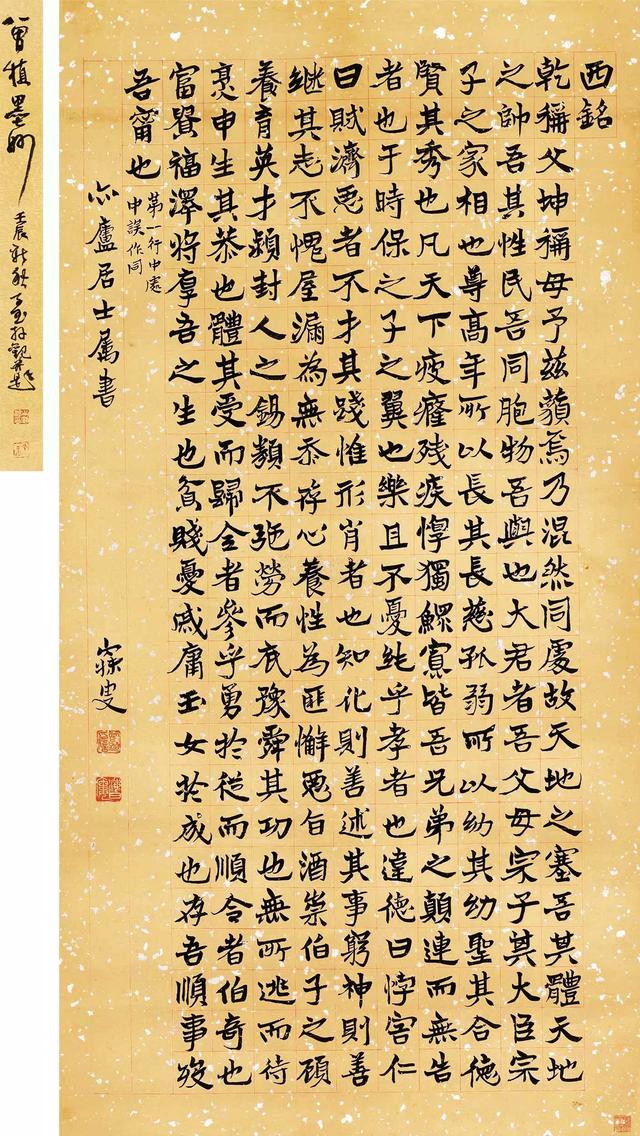 西銘
乾稱父坤稱母予茲藐焉乃混然同處故天地之塞吾其體天地
之帥吾其性民吾同胞物吾與也大君者吾父母宗子其大臣宗
子之家相也尊高年所以長其長慈孤弱所以幼其幼聖其合德
賢其秀也凡天下疲癃残疾惸獨鰥寡皆吾兄弟之顛連而無告
者也于時保之子之翼也樂且不憂純乎孝者也違德曰悖害仁
曰賊濟惡者不才其踐惟形肖者也知化則善述其事窮神則善
继其志不愧屋漏為無忝存心養性為匪懈惡旨酒崇伯子之顧
養育英才潁封人之錫類不弛勞而底豫舜其功也無所逃而待
烹申生其恭也體其受而歸全者參乎勇於從而順令者伯奇也
富貴福澤將厚吾之生也貧賤憂戚庸玉女於成也存吾順事歿
吾甯也
第一行中處
中誤作同
亦廬居士属書
寐叟
曾植墨妙
壬辰新秋觀并題